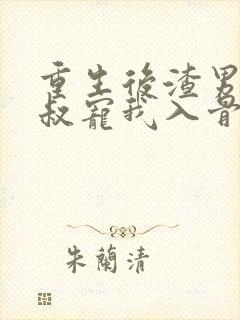 重生後渣男
叔寵我入骨
朱蘭清